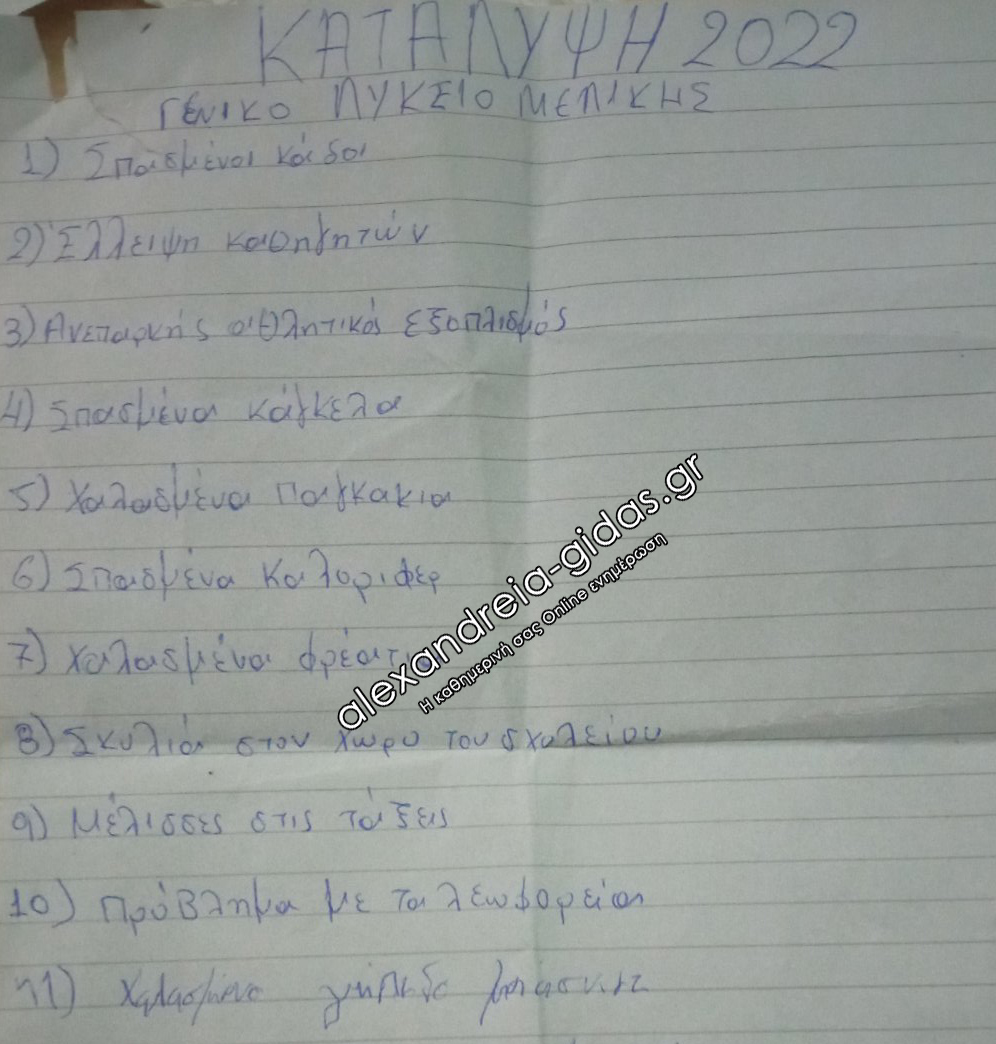 ΚΑΤΑΛΥΨΗ 2022
ΓΕΝΙΚΟ ΛΥΚΕΙΟ ΜΕΛΙΚΗΣ
1) Σπασμένοι κάδοι
2) Έλλειψη καθηγητών
3) Ανεπαρκής αθλητικός εξοπλισμός
4) Σπασμένα κάγκελα
5) Χαλασμένα παγκακια
6) Σπασμένα καλοριφερ
7) Χαλασμένα φρέατια
8) Σκυλιά στον χωρο του σχολείου
9) Μέλισσες στις τάξεις
10) Πρόβλημα με τα λεωφορεία
11) Χαλασμένο γήπεδο μπασκετ
alexandreia-gidas.gr
Η καθημερινή σας Online ενημέρωση